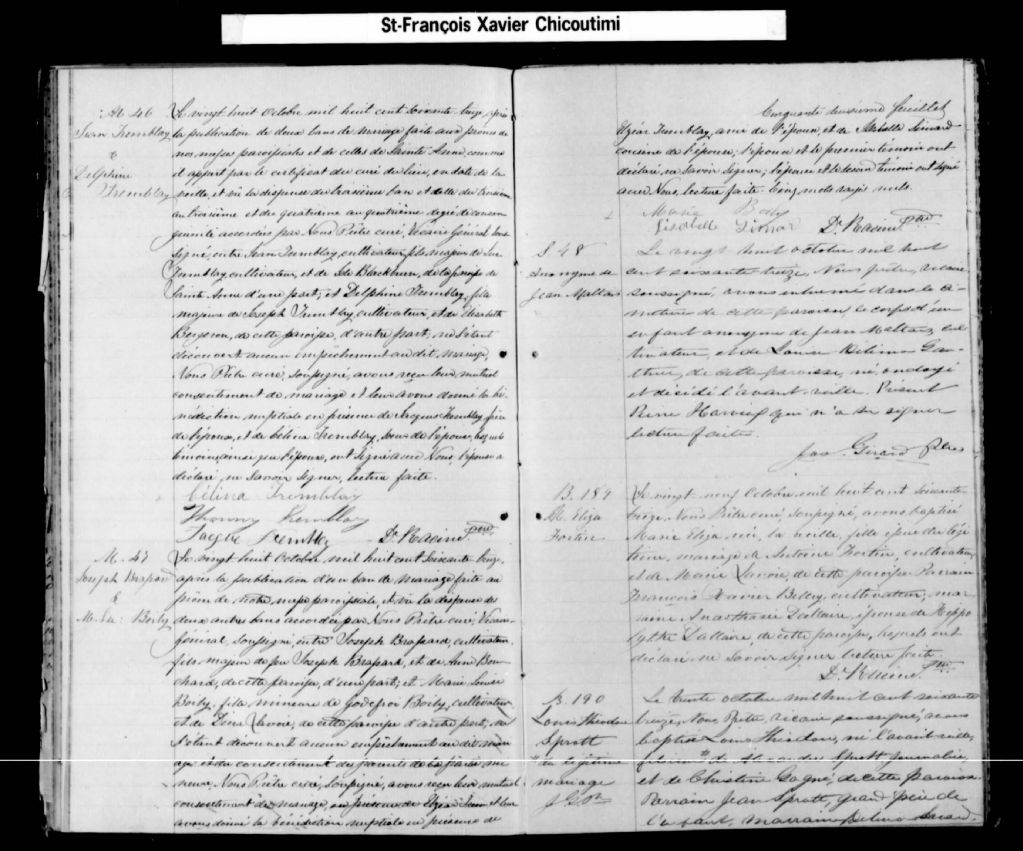 St-François Xavier Chicoutimi
M. 46
Jean Tremblay
&
Delphine
Tremblay
Le vingt huit Octobre mil huit cent soixante treize, après
la publication de deux bans de mariage faite aux prônes de
nos messes paroissiales et de celles de Sainte Anne, comme
il appert par le certificat du curé de lieu, en date de la
veille, et vu la dispense du troisième ban et celle du troisième
au troisième et du quatrième au quatrième degré de consan-
guinité accordées par Nous Prêtre curé, Vicaire Général sous-
signé, entre Jean Tremblay, cultivateur, fils majeur de
Tremblay, cultivateur, et de Blackburn, de la paroisse de
Sainte Anne d'une part; et Delphine Tremblay, fille
majeure de Joseph Tremblay, cultivateur, et de Elisabeth
Bergeron, de cette paroisse, d'autre part; ne s'étant
découvert aucun empêchement au dit mariage,
Nous Prêtre curé, soussigné, avons reçu leur mutuel
consentement de mariage et leur avons donné la bé-
nédiction nuptiale en présence de Jacques Tremblay, frère
de l'époux, et de Célina Tremblay, soeur de l'épouse, lesquels
témoins, ainsi que l'époux, ont signé avec Nous, l'épouse a
déclaré ne savoir signer, lecture faite.
Célina Tremblay
Tremblay
Tremblay D. Racine Ptre
M. 47
Joseph Brassard
&
M. Ls: Boily
Le vingt huit Octobre mil huit cent soixante treize,
après la publication d'un ban de mariage faite au
prône de notre messe paroissiale, et vu la dispense des
deux autres bans accordée par Nous Prêtre curé, Vicaire
Général, soussigné, entre Joseph Brassard, cultivateur,
fils majeur de feu Joseph Brassard, et de Anne Bou-
chard, de cette paroisse, d'une part; et Marie Louise
Boily, fille mineure de Godefroi Boily, cultivateur,
et de Savoie, de cette paroisse d'autre part; ne
s'étant découvert aucun empêchement au dit mari-
age et du consentement des parents de la partie mi-
neure, Nous Prêtre curé, soussigné, avons reçu leur mutuel
consentement de mariage, en présence de et leur
avons donné la bénédiction nuptiale en présence de
Cinquante troisième feuillet
Elzéar Tremblay, ami de l'époux, et de Simard
cousine de l'épouse; l'époux et le premier témoin ont
déclaré ne savoir signer; l'épouse et le second témoin ont signé
avec Nous, lecture faite. Cinq mots rayés nuls.
Marie Boily
Simard D. Racine Ptre
S. 48
Anonyme de
Jean Maltais
Le vingt huit octobre mil huit
cent soixante treize, Nous prêtre, vicaire
soussigné, avons inhumé dans le ci-
metière de cette paroisse le corps d'un
enfant anonyme de Jean Maltais, cul-
tivateur, et de Louise Gau-
thier, de cette paroisse, né, ondoyé
et décédé l'avant veille. Présent
Pierre qui n'a su signer
lecture faite.
Jas. Girard Ptre
B. 189
M. Eliza
Fortin
Le vingt neuf Octobre mil huit cent soixante
treize, Nous Prêtre curé, soussigné, avons baptisé
Marie Eliza née, la veille, fille issue du légi-
time, mariage d'Antoine Fortin, cultivateur,
et de Marie Savoie, de cette paroisse. Parrain
François Xavier cultivateur, mar-
raine Anasthasie Dallaire, épouse de Hippo-
lythe Dallaire, de cette paroisse, lesquels ont
déclaré ne savoir signer lecture faite.
D. Racine Ptre
B. 190
Louis Théodore
Spratt
du légitime
mariage
J G Ptre
Le trente octobre mil huit cent soixante
treize, Nous, Prêtre, vicaire soussigné, avons
baptisé Louis Théodore, né l'avant veille,
fils de Spratt journalier,
et de Christine Gagné, de cette paroisse
Parrain Jean Spratt, grand père de
l'enfant, marraine